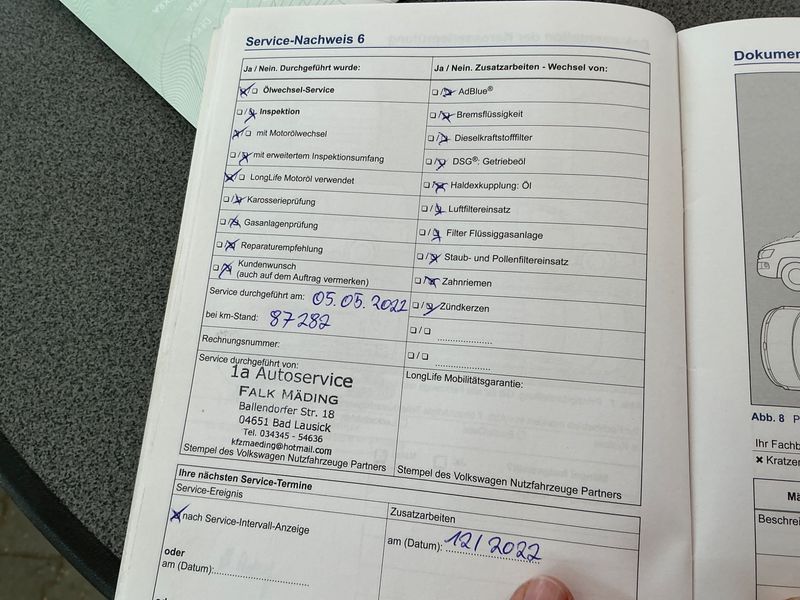 Service-Nachweis 6
Ja / Nein. Durchgeführt wurde:
Ölwechsel-Service
Inspektion
mit Motorölwechsel
mit erweitertem Inspektionsumfang
LongLife Motoröl verwendet
Karosserieprüfung
Gasanlagenprüfung
Reparaturempfehlung
Kundenwunsch
(auch auf dem Auftrag vermerken)
Service durchgeführt am: 05.05.2022
bei km-Stand: 87282
Rechnungsnummer:
Service durchgeführt von:
1a Autoservice
FALK MÄDING
Ballendorfer Str. 18
04651 Bad Lausick
Tel. 034345 - 54636
kfzmaeding@hotmail.com
Stempel des Volkswagen Nutzfahrzeuge Partners
Ja / Nein. Zusatzarbeiten - Wechsel von:
AdBlue®
Bremsflüssigkeit
Dieselkraftstofffilter
DSG®: Getriebeöl
Haldexkupplung: Öl
Luftfiltereinsatz
Filter Flüssiggasanlage
Staub- und Pollenfiltereinsatz
Zahnriemen
Zündkerzen
LongLife Mobilitätsgarantie:
Stempel des Volkswagen Nutzfahrzeuge Partners
Ihre nächsten Service-Termine
Service-Ereignis
nach Service-Intervall-Anzeige
oder
am (Datum):
Zusatzarbeiten
am (Datum): 12/2022
Abb. 8
Ihr
Beschrei
DEKRA